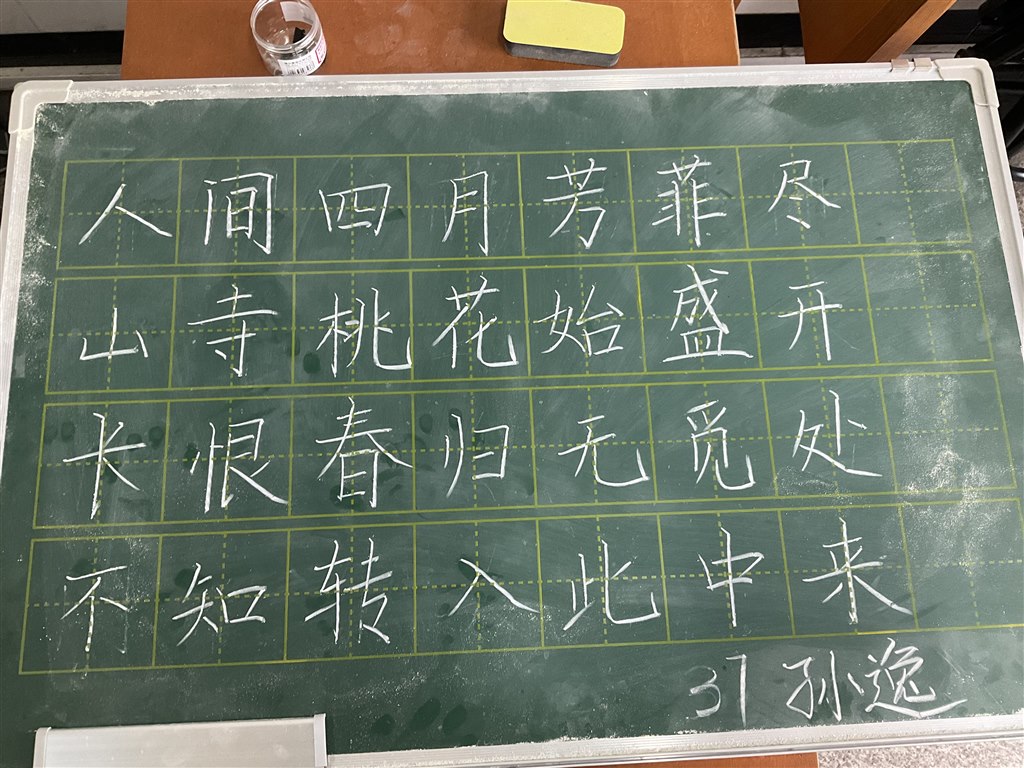 人间四月芳菲尽
山寺桃花始盛开
长恨春归无觅处
不知转入此中来
37 孙逸